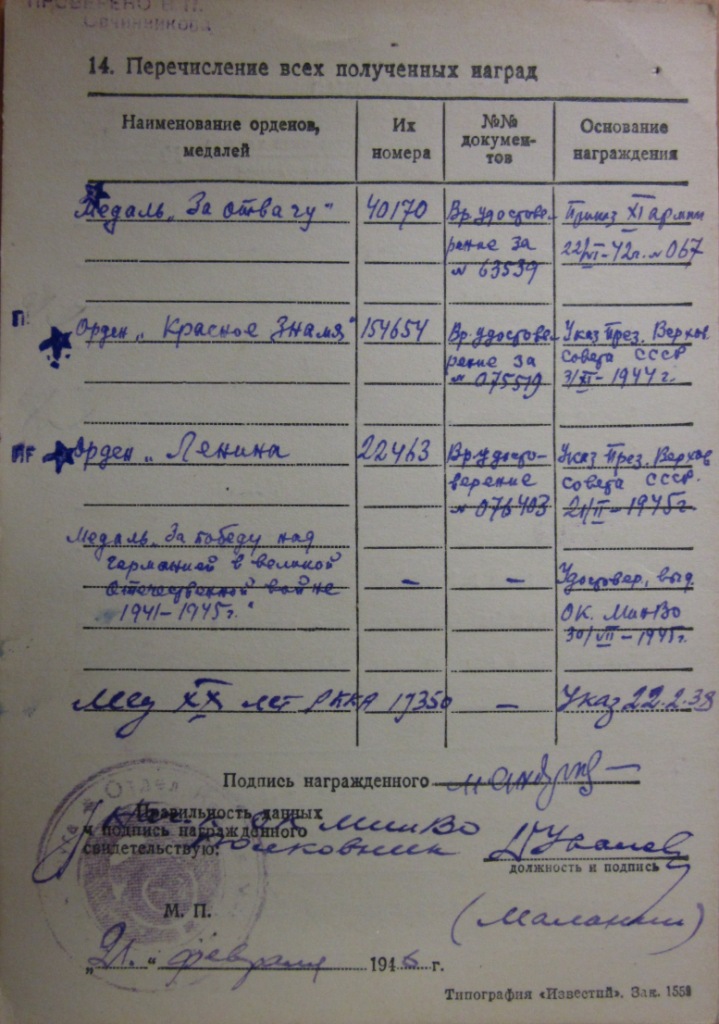 ПРОВЕРЕНО В П.
Овчинникова
14. Перечисление всех полученных наград
Наименование орденов, медалей
Их номера
№№ докумен-тов
Основание награждения
Медаль „За отвагу" 40170 Вр. удостове- Приказ XI армии
рение за 22/VI-42г. № 067
№ 63539
П
Орден „Красное Знамя" 154654 Вр. удостове- Указ През. Верхов
рение за совета СССР
№ 075519 3/XI-1944г.
ПГ
Орден „Ленина 22463 Вр. удосто- Указ През. Верхов
верение совета СССР.
№ 076403 21/II-1945г.
Медаль „За победу над
германией в великой – – Удостовер. выд.
Отечественной войне
1941-1945г." ОК. МинВО
30/VII-1945г.
Мед XX лет РККА 17350 – Указ 22.2.38
Подпись награжденного
Правильность данных
и подпись награжденного МинВО
свидетельствую: Полковник
должность и подпись
М. П.
(Маланин)
„21." февраля 1946 г.
Типография «Известий». Зак. 1553